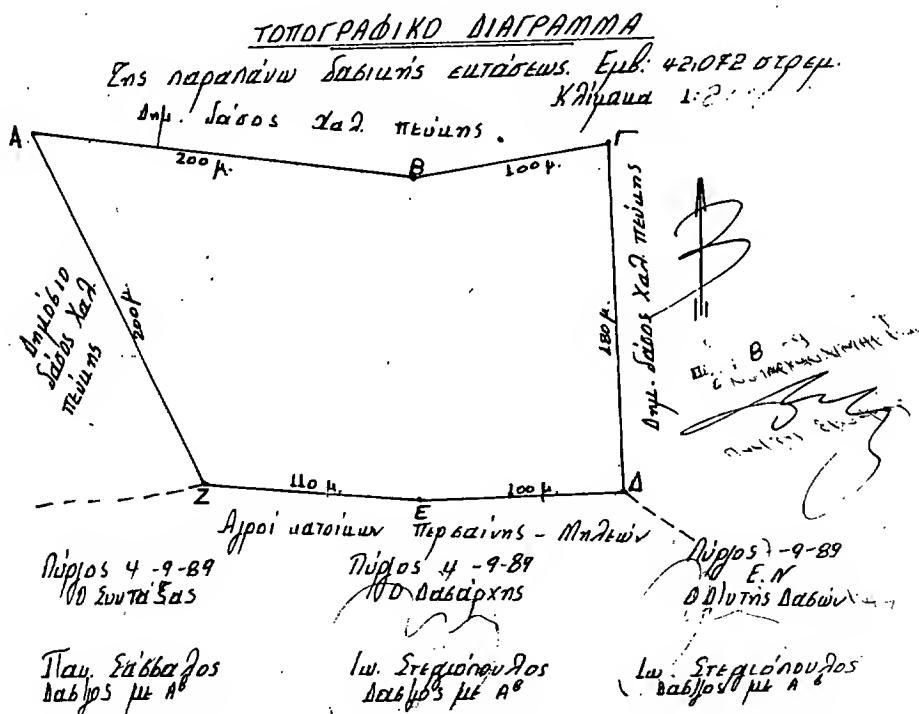 ΤΟΠΟΓΡΑΦΙΚΟ ΔΙΑΓΡΑΜΜΑ
Της παραπάνω δασικής εκτάσεως. Εμβ: 42,072 στρεμ.
Κλίμακα 1:2
Δημ. δάσος Χαλ. πεύκης.
Α
200 μ.
Β
100 μ.
Γ
Δημόσιο δάσος Χαλ. πεύκης
200 μ.
180 μ.
Δημ. δάσος Χαλ. πεύκης
Β
Ζ
110 μ.
Ε
100 μ.
Δ
Αγροί κατοίκων Περσαίνης - Μηλεών
Πύργος 4-9-89
Ο Συντάξας
Παν. Σάσσαλος
Δασ/γος με Αβ
Πύργος 4-9-89
Ο Δασάρχης
Ιω. Στεργιόπουλος
Δασ/γος με Αβ
Πύργος -9-89
Ε.Ν
Ο Δ/ντής Δασών
Ιω. Στεργιόπουλος
Δασ/γος με Αβ